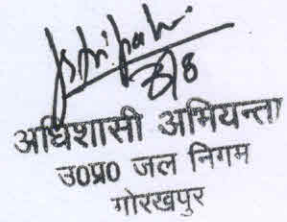 अधिशासी अभियन्ता
उ0प्र0 जल निगम
गोरखपुर